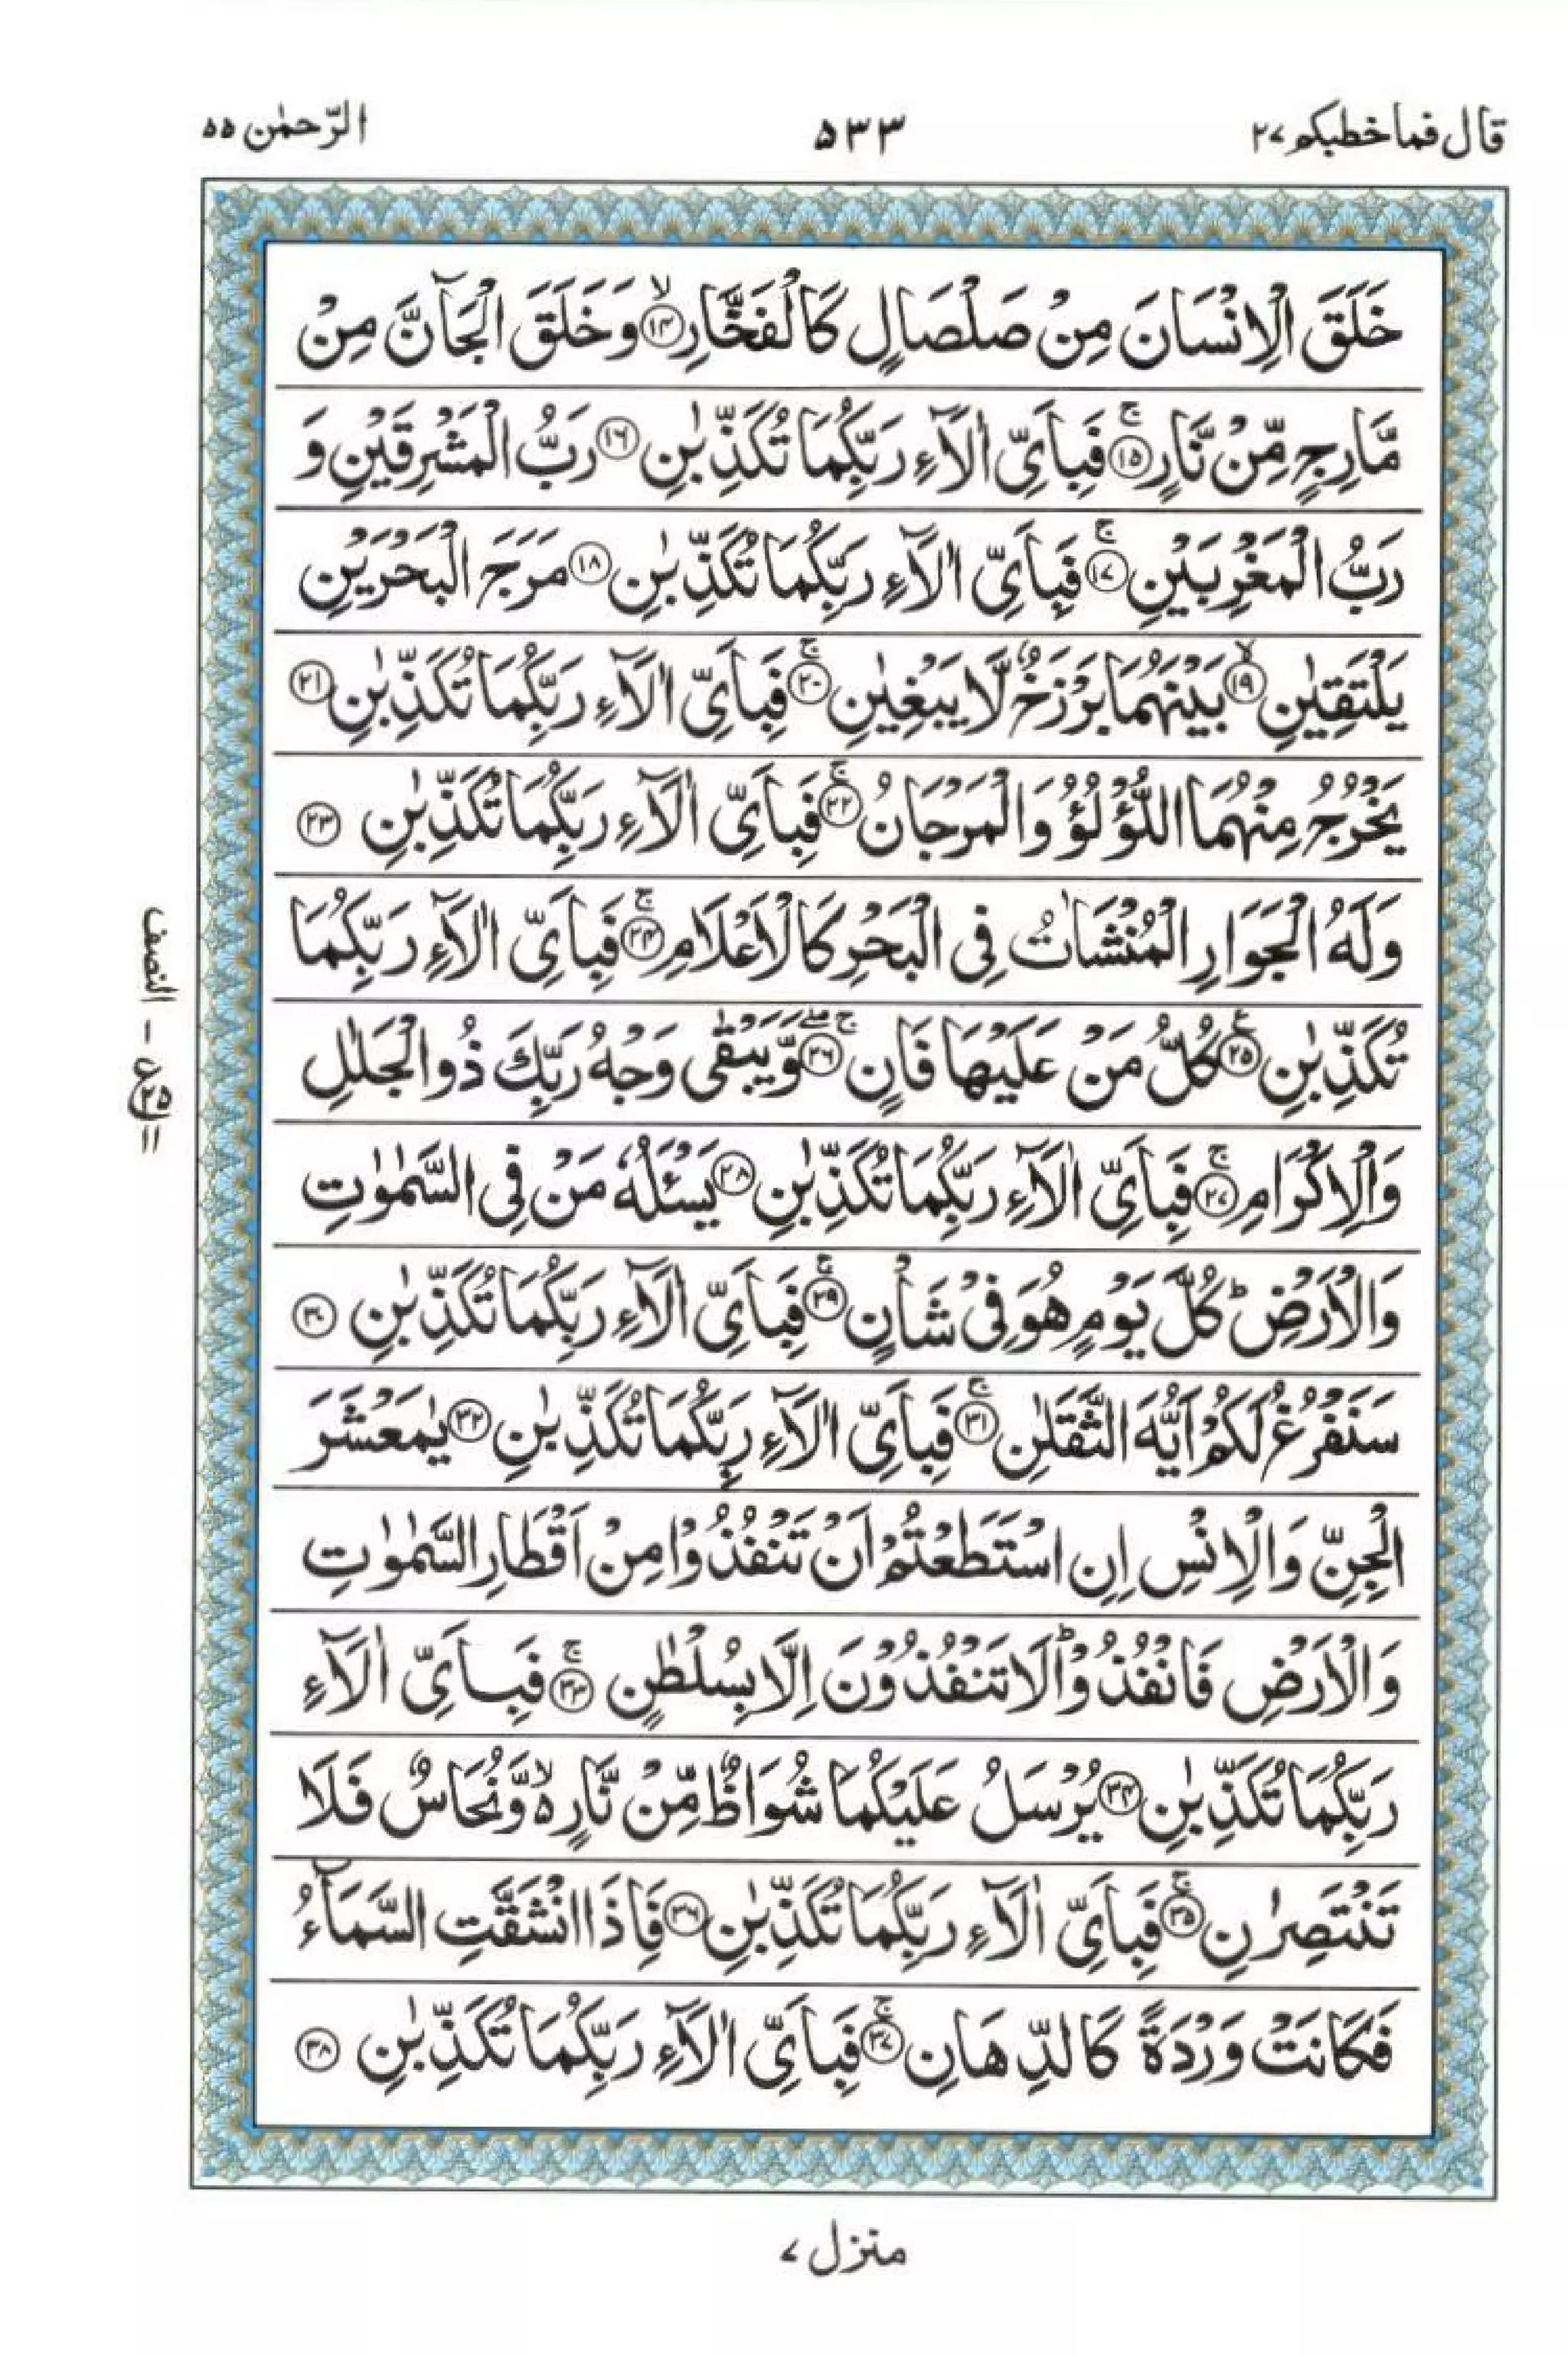 قال فماخطبكم ٢٧
٥٣٣
الرّحمٰن ٥٥
خَلَقَ الْاِنْسَانَ مِنْ صَلْصَالٍ كَالْفَخَّارِ ۙ‏﴿۱۴﴾ وَخَلَقَ الْجَآنَّ مِنْ
مَّارِجٍ مِّنْ نَّارٍ ۚ‏﴿۱۵﴾ فَبِاَىِّ اٰلَآءِ رَبِّكُمَا تُكَذِّبٰنِ ﴿۱۶﴾ رَبُّ الْمَشْرِقَيْنِ وَ
رَبُّ الْمَغْرِبَيْنِ ۚ‏﴿۱۷﴾ فَبِاَىِّ اٰلَآءِ رَبِّكُمَا تُكَذِّبٰنِ ﴿۱۸﴾ مَرَجَ الْبَحْرَيْنِ
يَلْتَقِيٰنِ ۙ‏﴿۱۹﴾ بَيْنَهُمَا بَرْزَخٌ لَّا يَبْغِيٰنِ ۚ‏﴿۲۰﴾ فَبِاَىِّ اٰلَآءِ رَبِّكُمَا تُكَذِّبٰنِ ﴿۲۱﴾
يَخْرُجُ مِنْهُمَا اللُّؤْلُؤُ وَالْمَرْجَانُ ۚ‏﴿۲۲﴾ فَبِاَىِّ اٰلَآءِ رَبِّكُمَا تُكَذِّبٰنِ ﴿۲۳﴾
وَلَهُ الْجَوَارِ الْمُنْشَاٰتُ فِى الْبَحْرِ كَالْاَعْلَامِ ۚ‏﴿۲۴﴾ فَبِاَىِّ اٰلَآءِ رَبِّكُمَا
تُكَذِّبٰنِ ﴿۲۵﴾ ع كُلُّ مَنْ عَلَيْهَا فَانٍ ۚۖ‏﴿۲۶﴾ وَّيَبْقٰى وَجْهُ رَبِّكَ ذُو الْجَلٰلِ
وَالْاِكْرَامِ ۚ‏﴿۲۷﴾ فَبِاَىِّ اٰلَآءِ رَبِّكُمَا تُكَذِّبٰنِ ﴿۲۸﴾ يَسْـَٔلُهٗ مَنْ فِى السَّمٰوٰتِ
وَالْاَرْضِ ؕ كُلَّ يَوْمٍ هُوَ فِىْ شَاْنٍ ۚ‏﴿۲۹﴾ فَبِاَىِّ اٰلَآءِ رَبِّكُمَا تُكَذِّبٰنِ ﴿۳۰﴾
سَنَفْرُغُ لَكُمْ اَيُّهَ الثَّقَلٰنِ ۚ‏﴿۳۱﴾ فَبِاَىِّ اٰلَآءِ رَبِّكُمَا تُكَذِّبٰنِ ﴿۳۲﴾ يٰمَعْشَرَ
الْجِنِّ وَالْاِنْسِ اِنِ اسْتَطَعْتُمْ اَنْ تَنْفُذُوْا مِنْ اَقْطَارِ السَّمٰوٰتِ
وَالْاَرْضِ فَانْفُذُوْا ؕ لَا تَنْفُذُوْنَ اِلَّا بِسُلْطٰنٍ ۚ‏﴿۳۳﴾ فَبِاَىِّ اٰلَآءِ
رَبِّكُمَا تُكَذِّبٰنِ ﴿۳۴﴾ يُرْسَلُ عَلَيْكُمَا شُوَاظٌ مِّنْ نَّارٍ ۙ۬ وَّنُحَاسٌ فَلَا
تَنْتَصِرٰنِ ۚ‏﴿۳۵﴾ فَبِاَىِّ اٰلَآءِ رَبِّكُمَا تُكَذِّبٰنِ ﴿۳۶﴾ فَاِذَا انْشَقَّتِ السَّمَآءُ
فَكَانَتْ وَرْدَةً كَالدِّهَانِ ۚ‏﴿۳۷﴾ فَبِاَىِّ اٰلَآءِ رَبِّكُمَا تُكَذِّبٰنِ ﴿۳۸﴾
النصف
منزل ٧